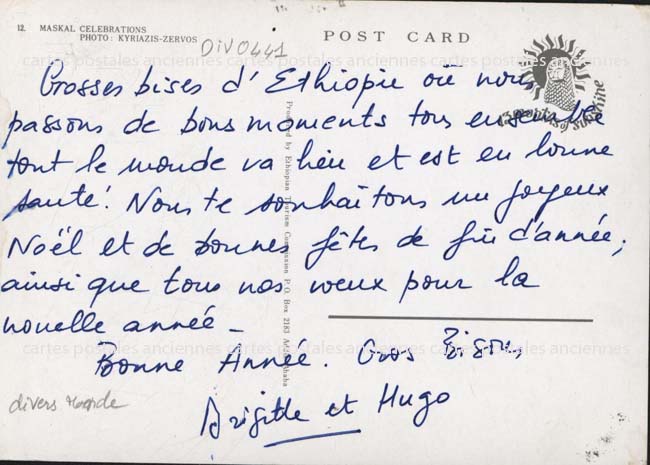 12. MASKAL CELEBRATIONS
PHOTO: KYRIAZIS-ZERVOS
DIV0441
POST CARD
cartes postales anciennes cartes postales anciennes cartes postales anciennes
13 months of sunshine
Grosses bises d'Ethiopie où nous
passons de bons moments tous ensemble
tout le monde va bien et est en bonne
santé. Nous te souhaitons un joyeux
Noël et de bonnes fêtes de fin d'année,
ainsi que tous nos voeux pour la
nouvelle année -
Bonne Année. Gros Bisous,
Brigitte et Hugo
Produced by Ethiopian Tourism Commission P.O. Box 2183 Addis Ababa
cartes postales anciennes cartes postales anciennes cartes postales anciennes
divers monde